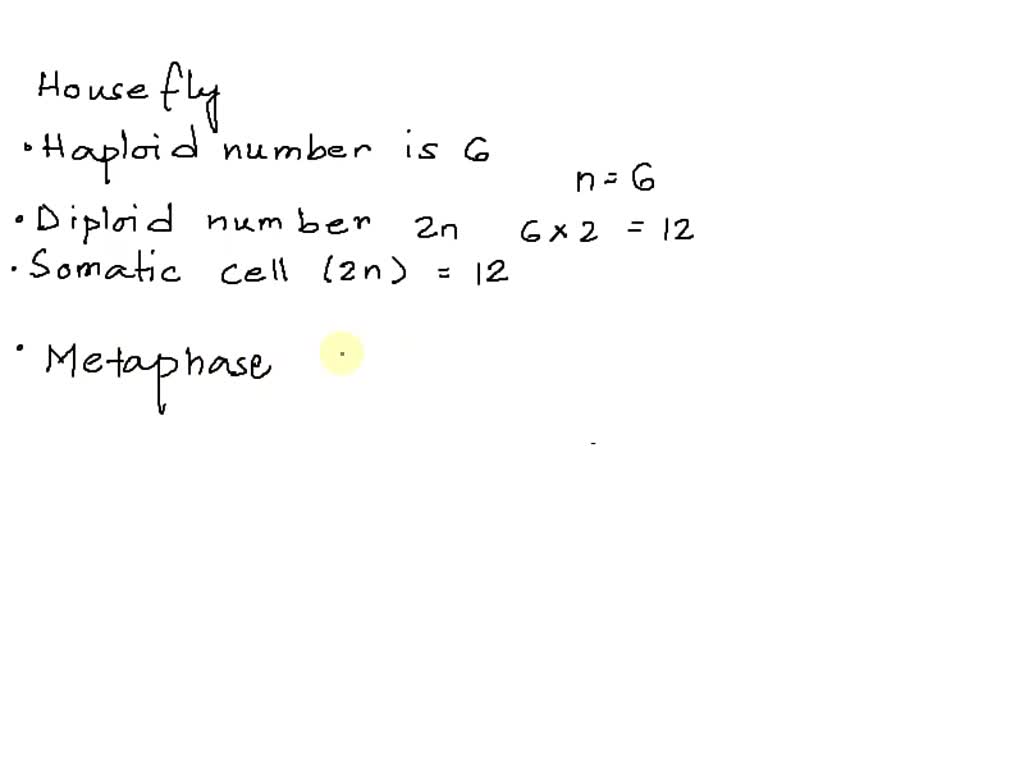 House fly
• Haploid number is 6
n = 6
• Diploid number 2n 6 × 2 = 12
• Somatic cell (2n) = 12
• Metaphase